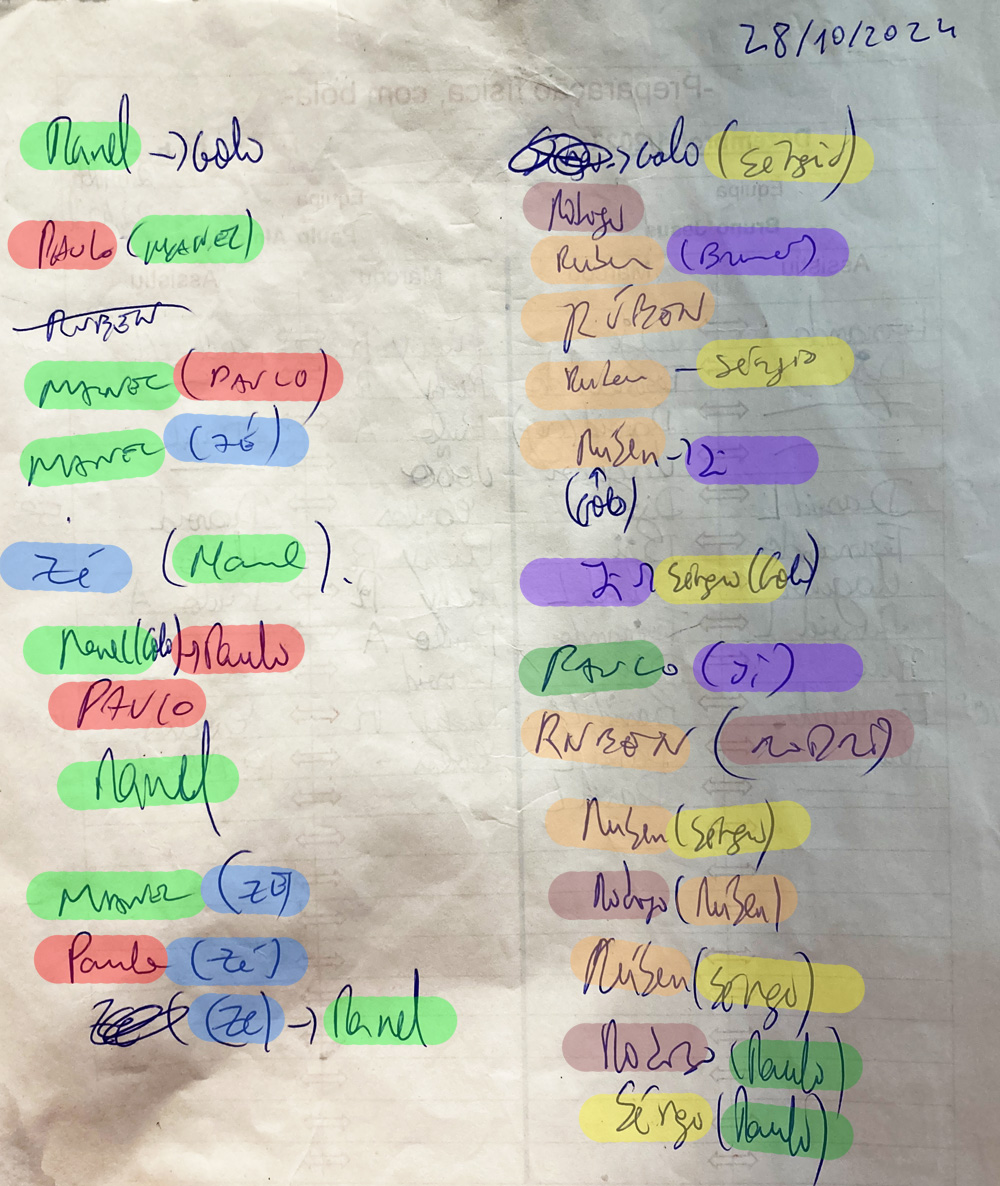 28/10/2024
Manel → Golo
PAULO (MANEL)
RUBEN
MANEL (PAULO)
MANEL (ZÉ)
Zé (Manel).
Manel (Golo) → Paulo
PAULO
Manel
MANEL (ZÉ)
Paulo (Zé)
(Zé) → Manel
→ Golo (Sérgio)
Rodrigo
Ruben (Bruno)
RÚBEN
Ruben – Sérgio
Rúben →
(Golo)
Sérgio (Golo)
PAULO
RUBEN (RODRI)
Ruben (Sérgio)
Rodrigo (Rúben)
Rúben (Sérgio)
Rodrigo (Paulo)
Sérgio (Paulo)